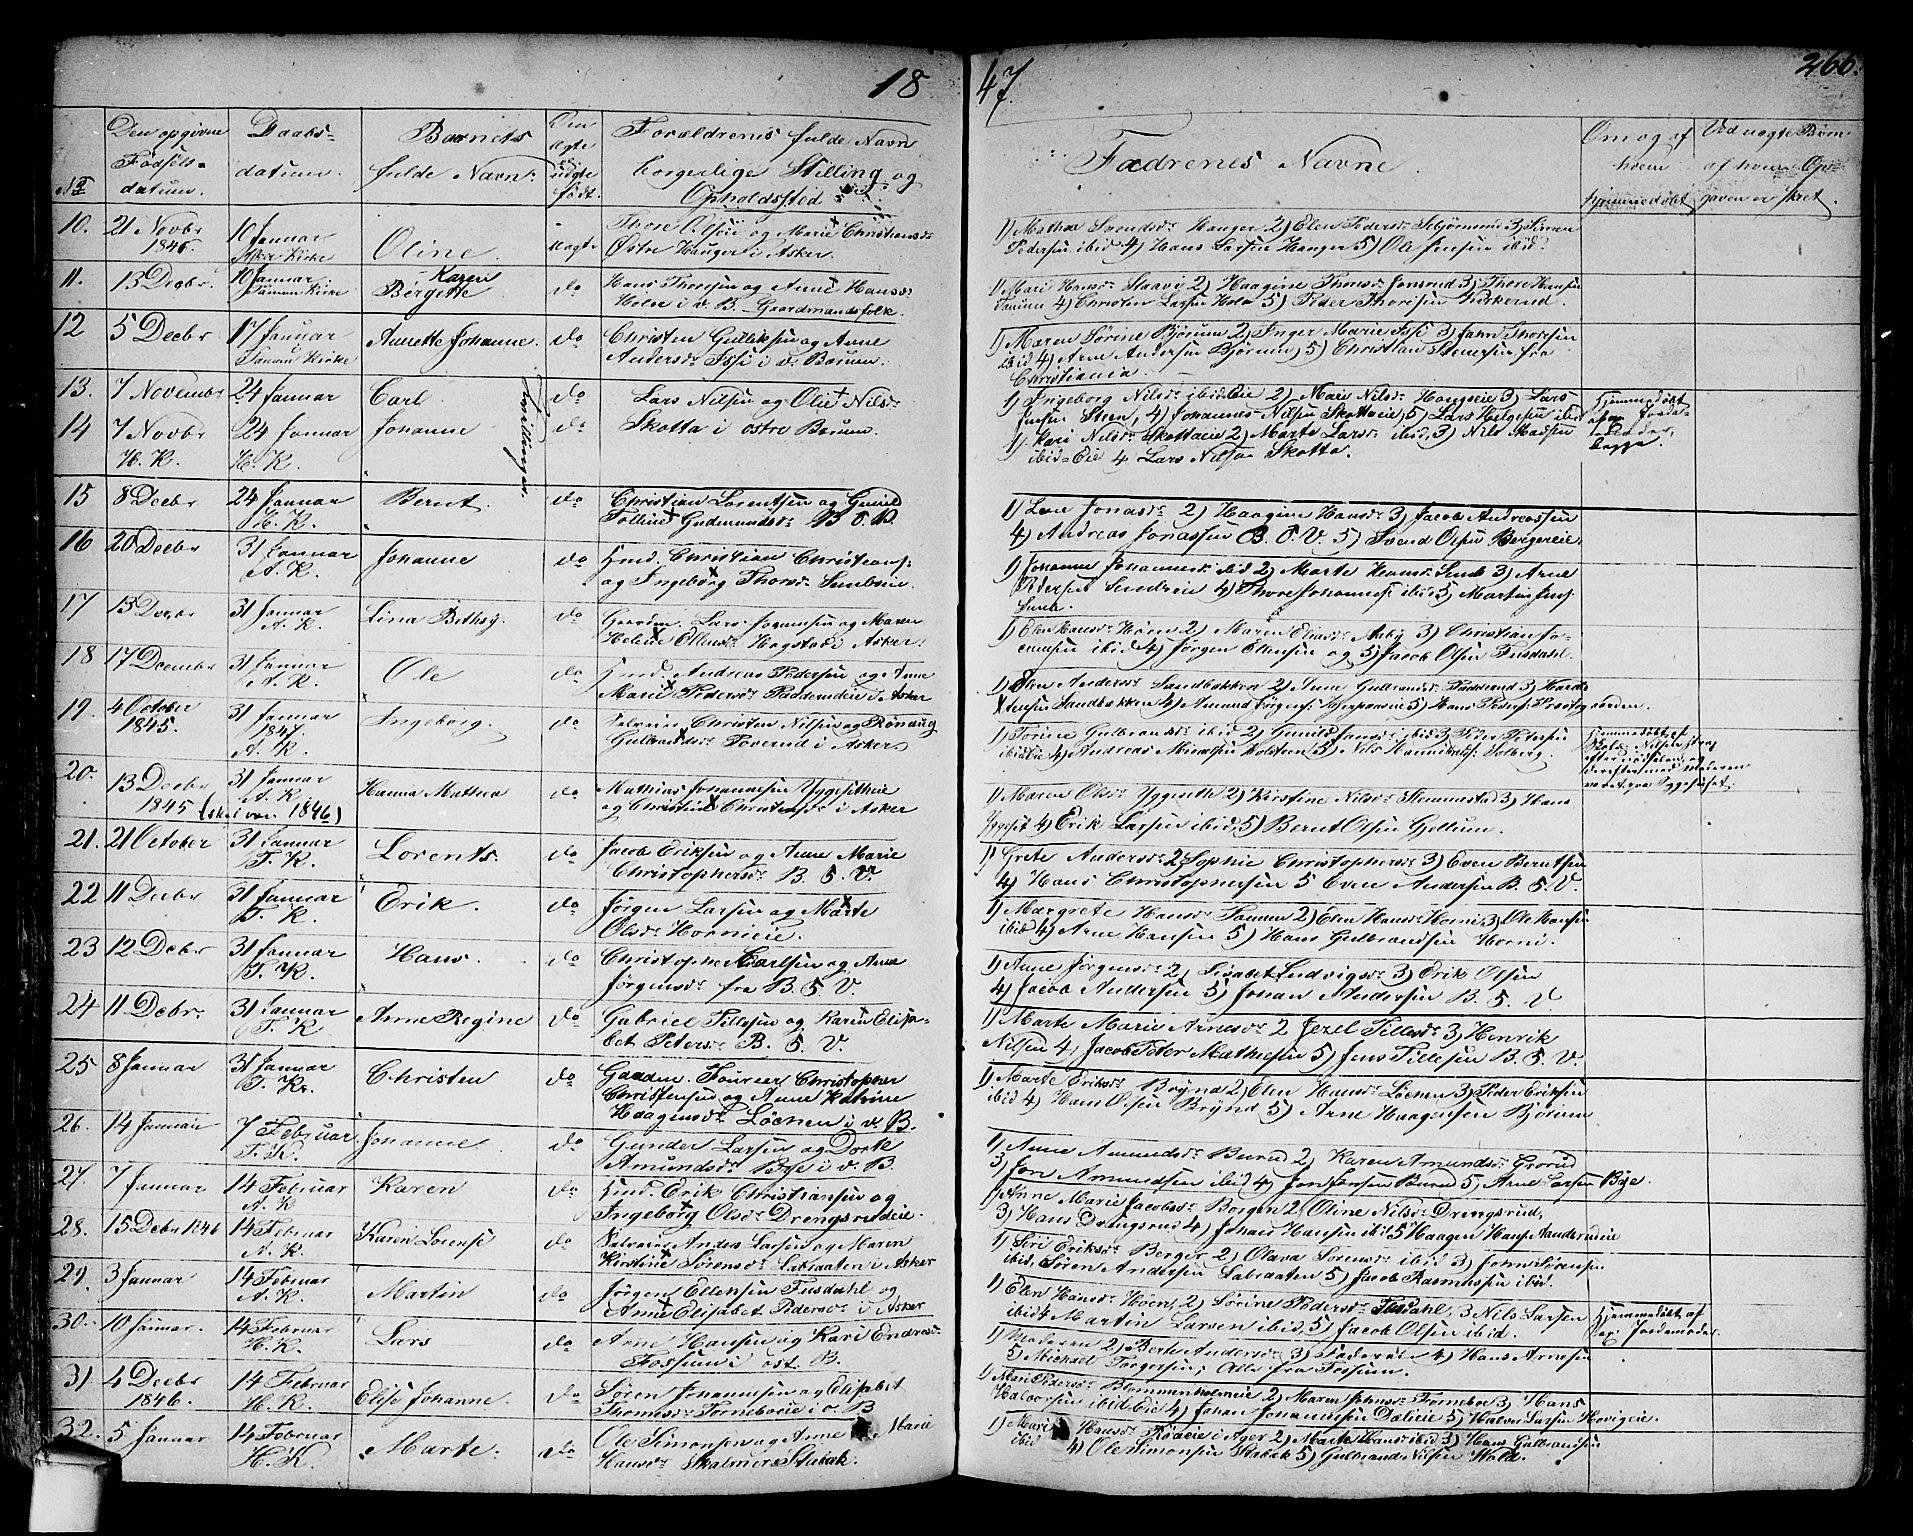 18
47.
266.
No
Den opgivne
Fødsels-
datum.
Daabs-
datum.
Barnets
fulde Navn
Om
ægte
uægte
født.
Forældrenes fulde Navn
borgerlige Stilling og
Opholdssted
Fadrenes Navne
Om og af
hvem
hjemmedøbt
Ved uægte Børn
af hvem Op-
gaven er skret.
10. 21 Novbr
1846.
10 Januar
Asker Kirke
Oline
uægte
Thore Olsen og Marie Christiansdr
Østre Hauger i Asker.
1) Mathea Svendsdr Hauger 2) Elen Pedersdr 3) Simen
Pedersen ibid 4) Hans Larsen Hauger 5) Ole Jensen ibid.
11. 13 Decbr.
10 Januar
Tanum Kirke
Karen
Bergette
do
Hans Thoresen og Anne Hansdr
Holoe i v. B. Gaardmandsfolk.
1) Mari Hansdr 2) Haagine Thorsdr Jonsrud 3) Thore Hansen
Tanum 4) Christen Larsen Holo 5) Peder Thoresen Kirkerud.
12 5 Decbr
17 Januar
Tanum Kirke
Annette Johanne.
do
Christen Gulliksen og Anne
Andersdr i v. Bærum.
1) Maren Sørine Bjørum 2) Inger Marie 3) John Thoresen
ibid 4) Arne Andersen Bjørum, 5) Christian Stenersen fra
Christiania.
13. 7 Novembr
24 Januar
Carl
Tvillinger.
do
Lars Nilsen og Olie Nilsdr
1) Ingeborg Nilsdr ibid Eie 2) Mari Nilsdr Haugseie 3) Lars
Jensen Steen, 4) Johannes Nilsen Skottaeie 5) Lars Helgesen ibid
Hjemmedøbt
14 7 Novbr
H. K.
24 Januar
H. K.
Johanne
do
Skotta i østre Bærum.
1) Kari Nilsdr Skottaeie 2) Marte Larsdr ibid, 3) Nils Madsen
ibid Eie 4 Lars Nilsen Skotta.
begge.
15 8 Decbr
24 Januar
H. K.
Bernt.
do
Christian Lorentsen og Gunild
Gudmundsdr B. O. V.
1) Lene Jonasdr 2) Haagine Hansdr 3) Jacob Andreassen
4) Andreas Jonassen B. O. V. 5) Svend Olsen Bergereie.
16 20 Decbr
31 Januar
A. K.
Johanne
do
Hmd. Christian Christians.
og Ingeborg Thorsdr
1) Johanne Johannesdr ibid 2) Marte Hansdr 3) Arne
Pedersen 4) Thore Johannes. ibid 5) Martin Jens.
17 13 Decbr
31 Januar
A. K.
Lina Bethsy.
do
Gaardm. Lars og Maren
Helene Ellensdr Hogstad i Asker.
1) Elen Hansdr Høen 2) Maren Eliasdr 3) Christian
ibid 4) Jørgen Ellensen og 5) Jacob Olsen Fusdahl.
18 17 Decembr
31 Januar
A. K.
Ole
do
Hmd. Andreas Pedersen og Anne
Marie Pedersdr Padderudeie i Asker
1) Elen Andersdr Sandbakken 2) Anne Gulbrandsdr Padderud 3)
Sandbakken 4) Amund Jørgens. 5) Hans Peders.
19. 4 October
1845.
31 Januar
1847.
A. K.
Ingeborg.
do
Selveier Christen Nilsen og Rønnaug
Gulbrandsdr Toverud i Asker
1) Torine Gulbrandsdr ibid 2) Gunild Jonsdr ibid 3 Peder Pedersen
ibid Eie 4) Andreas 5) Nils Solberg.
Hjemmedøbt af
Nilsen strax
efter Fødselen, og
derefter med Moderen
været paa Sygehuset.
20. 13 Decbr
1845 (skal være 1846)
31 Januar
A. K.
Hanna Mathea
do
Mathias Johannesen
og Christine i Asker
1) Maren Olsdr Yggeseth 2) Kirstine Nilsdr Stemmestad 3) Hans
4) Erik Larsen ibid, 5) Bernt Olsen Gjellum.
21. 21 October
31 Januar
T. K.
Lorents.
do
Jacob Eriksen og Anne Marie
Christophersdr B. O. V.
1) Grete Andersdr 2 Sophie Christophersdr 3) Even Berntsen
4) Hans Christophersen 5 Even Andersen B. O. V.
22 11 Decbr
31 Januar
T. K.
Erik.
do
Jørgen Larsen og Marte
Olsdr Hornieie.
1) Margrete Hansdr Tanum 2) Elen Hansdr Horni 3) Ole Hansen
ibid 4) Arne Hansen 5) Hans Gulbrandsen Horni.
23 12 Decbr
31 Januar
T. K.
Hans.
do
Christopher Carlsen og Anne
Jørgensdr fra B. O. V.
1) Anne Jørgensdr 2) Lisabet Ludvigsdr 3) Erik Olsen
4) Jacob Andersen 5) Johan Andersen B. O. V
24 11 Decbr.
31 Januar
T. K
Anne Regine
do
Gabriel Tillesen og Karen Elisa-
bet Petersdr B. O. V.
1) Marte Marie Arnesdr 2 Jezel Tillesdr 3) Henrik
Nilsen 4, Jacob Peter Mathiesen 5) Jens Tillesen B. O. V.
25 8 Januar
31 Januar
T. K.
Christen
do
Gaardm. Fourer Christopher
Christensen og Anne Katrine
Haagensdr Løchen i v. B.
1) Marte Eriksdr Brynd 2) Elen Hansdr Løchen 3) Peder Eriksen
ibid 4) Hans Olsen Brynd 5) Arne Haagensen Bjørum
26. 14 Januar
7 Februar.
T. K.
Johanne.
do
Gunder Larsen og Dorte
Amundsdr Bye i v. B.
1) Anne Amundsdr Burud 2) Karen Amundsdr Grorud
3) Jon Amundsen ibid 4) Jon Jensen Burud 5) Arne Larsen Bye.
27. 7 Januar
14 Februar
A. K
Karen
do
Hmd. Erik Christiansen og
Ingeborg Olsdr Drengsrudeie.
1) Anne Marie Jacobsdr Borgen 2) Oline Nilsdr Drengsrud,
3) Hans Drengsrud 4) Johan Hansen ibid 5 Haagen Hans.
28. 15 Decbr 1846
14 Februar
A. K.
Karen Lorense
do
Selveier Anders Larsen og Maren
Kirstine Sørensdr Labraaten i Asker
1) Siri Eriksdr Berger 2) Olava Sorensdr ibid 3) John Sørensen
ibid, Søren Andersen Labraaten 5) Jacob Rasmussen ibid.
29. 3 Januar
14 Februar
A. K.
Martin
do
Jørgen Ellensen Fusdahl og
Anne Elisabet Pedersdr i Asker
1) Elen Hansdr Høen, 2) Sørine Pedersdr Fusdahl, 3 Nils Larsen
ibid 4 Marten Larsen ibid, 5) Jacob Olsen ibid.
30. 10 Januar.
14 Februar
H. K.
Lars
do
Arne Hansen og Kari Endresdr
Fossum i øst. B.
1) Moderen 2) Berte Andersdr 3) Faderen 4) Hans Arnesen
5 Michael Torgersen; Alle fra Fossum.
Hjemmedøbt af
ex. Jordemoder.
31 4 Decbr
1846.
14 Februar
H. K.
Elise Johanne.
do
Søren Johannesen og Elisabet
Thomasdr Torneboeie i v. B
1) Mari Pedersdr Blommenholmeie 2) Maren Johnsdr Torneboe 3) Hans
Halvorsen ibid Eie 4) Johan Johannesen Daleie 5) Halvor Larsen Høvigeie.
32. 5 Januar
14 Februar
H. K.
Marte.
do
Ole Simonsen og Anne Marie
Hansdr Skalmerø Stabæk.
1) Mari Hansdr i Ager 2) Marte Hansdr ibid 3) Hans Gulbrandsen
ibid 4) Ole Simonsen Stabæk 5) Gulbrand Nilsen Wold.